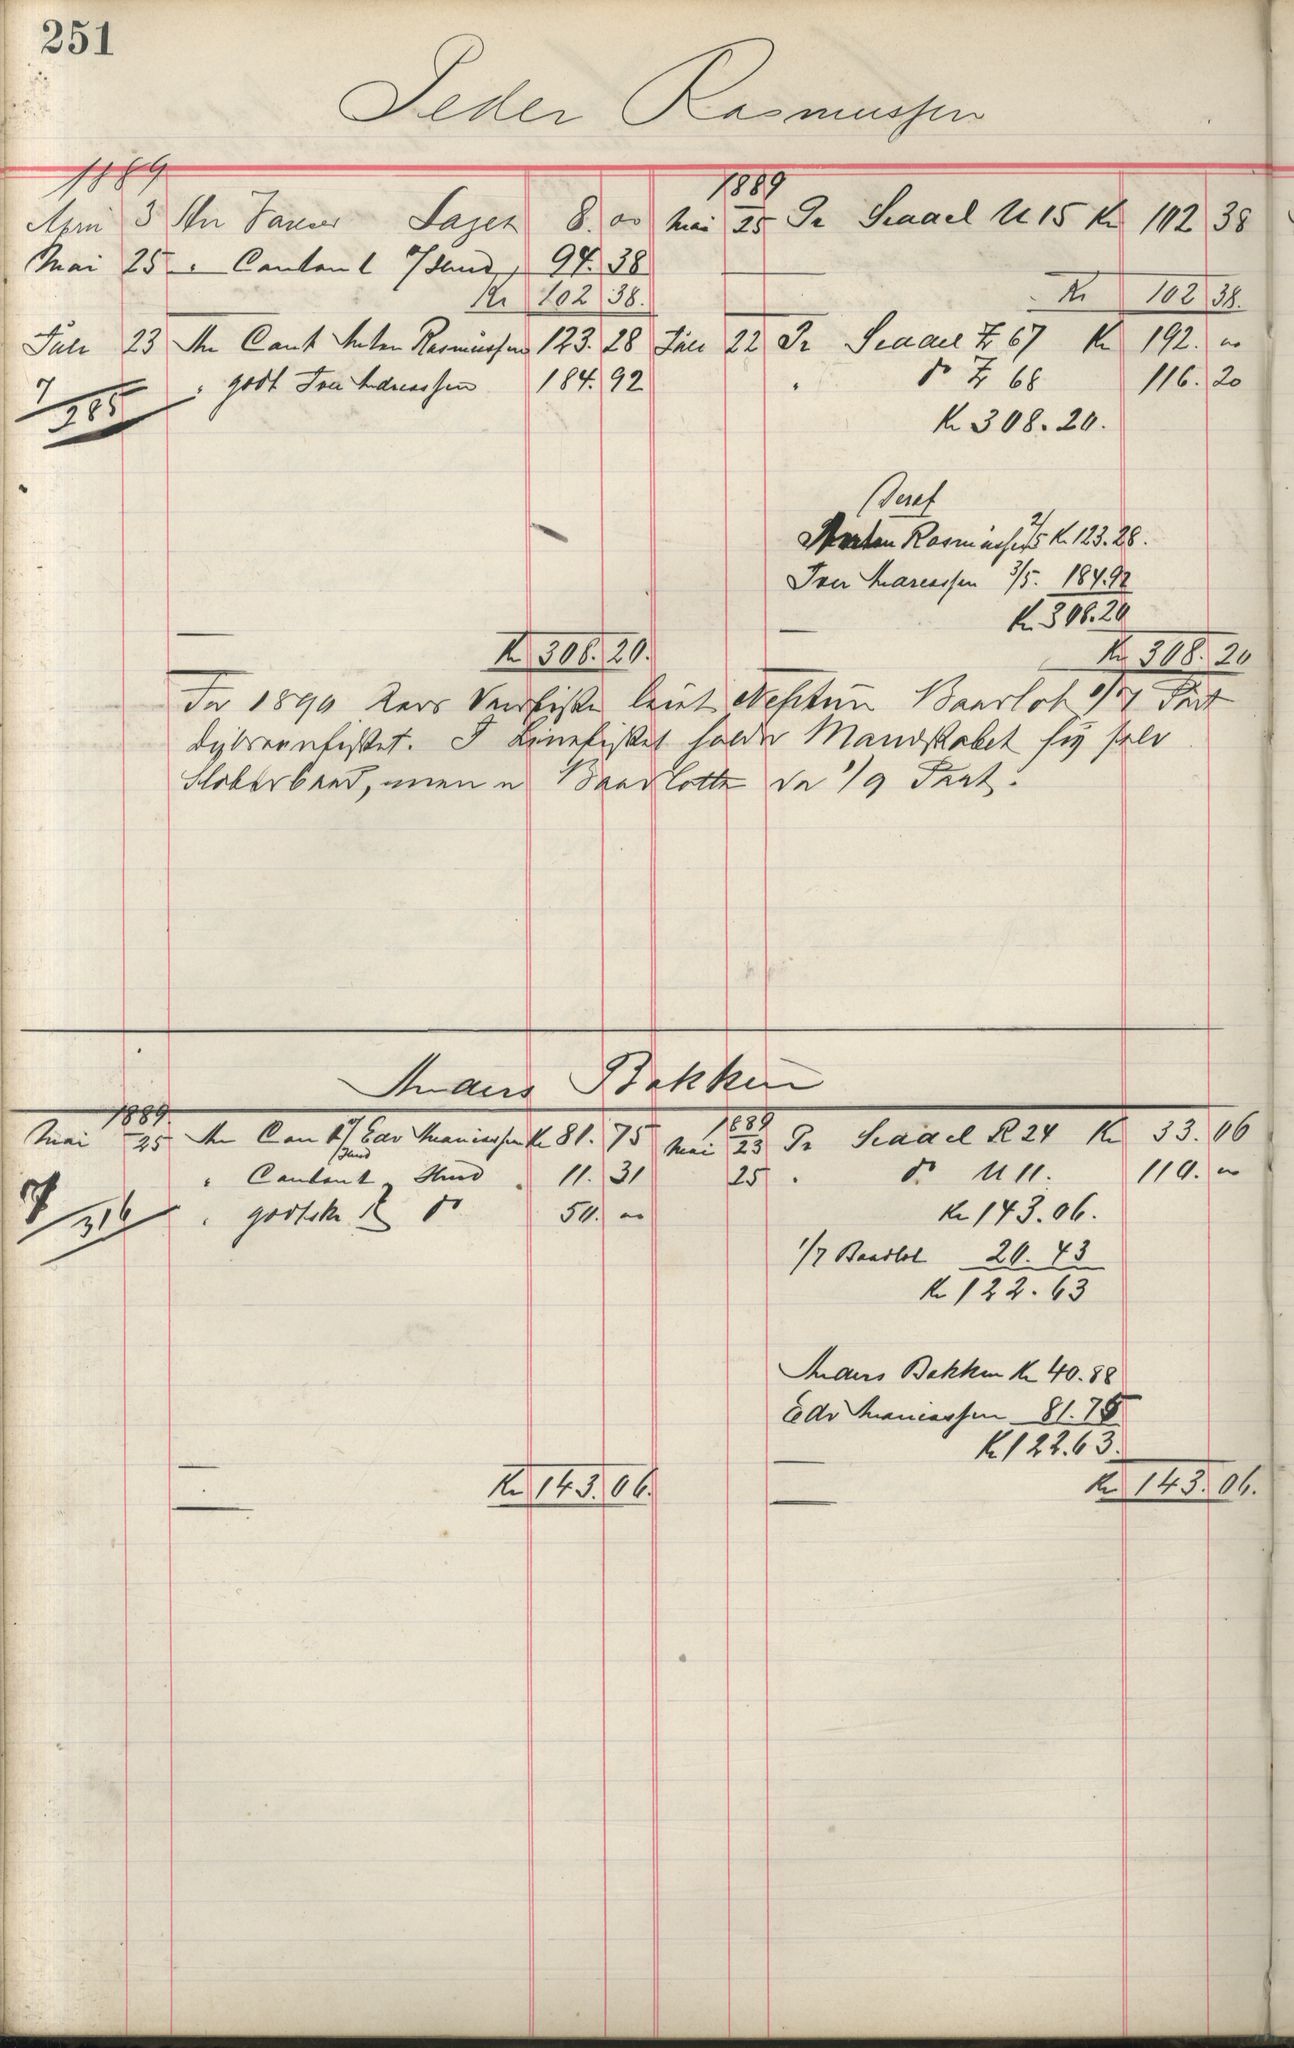 251
Peder Rasmussen
1889
April 3 An Varer Laget 8. 00
Mai 25 " Contant 94. 38
Kr 102 38.
Juli 23 An Cont Anton Rasmussen 123. 28
" godt Iver Andreassen 184. 92
7/285
Kr 308. 20.
1889
Mai 25 Pr Seddel U 15 Kr 102 38
Kr 102 38.
Juli 22 Pr Seddel Z 67 Kr 192. 00
" do Z 68 116. 20
Kr 308. 20.
Deraf
Anton Rasmussen 2/5 Kr 123. 28.
Iver Andreassen 3/5. 184. 92
Kr. 308. 20
Kr 308. 20
For 1890 Aars Vaarfiske leiet Neptun Baadlot 1/7 Part
Dybvannfisket. I Linefisket holder Mandskabet sig selv
, men Baadlotten er 1/9 Part.
Anders Bakken
1889.
Mai 25 An Cont Edv Andreassen Kr 81. 75
" Contant 11. 31
" godtskr do 50. 00
7/316
Kr 143. 06.
1889
Mai 23 Pr Seddel R 24 Kr 33. 06
25 " do U 11. 110. 00
Kr 143. 06.
1/7 Baadlot 20. 43
Kr 122. 63
Anders Bakken Kr 40. 88
Edv Andreassen 81. 75
Kr 122. 63.
Kr 143. 06.